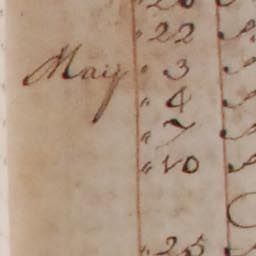 " 22
May " 3
" 4
" 7
" 10
" 25